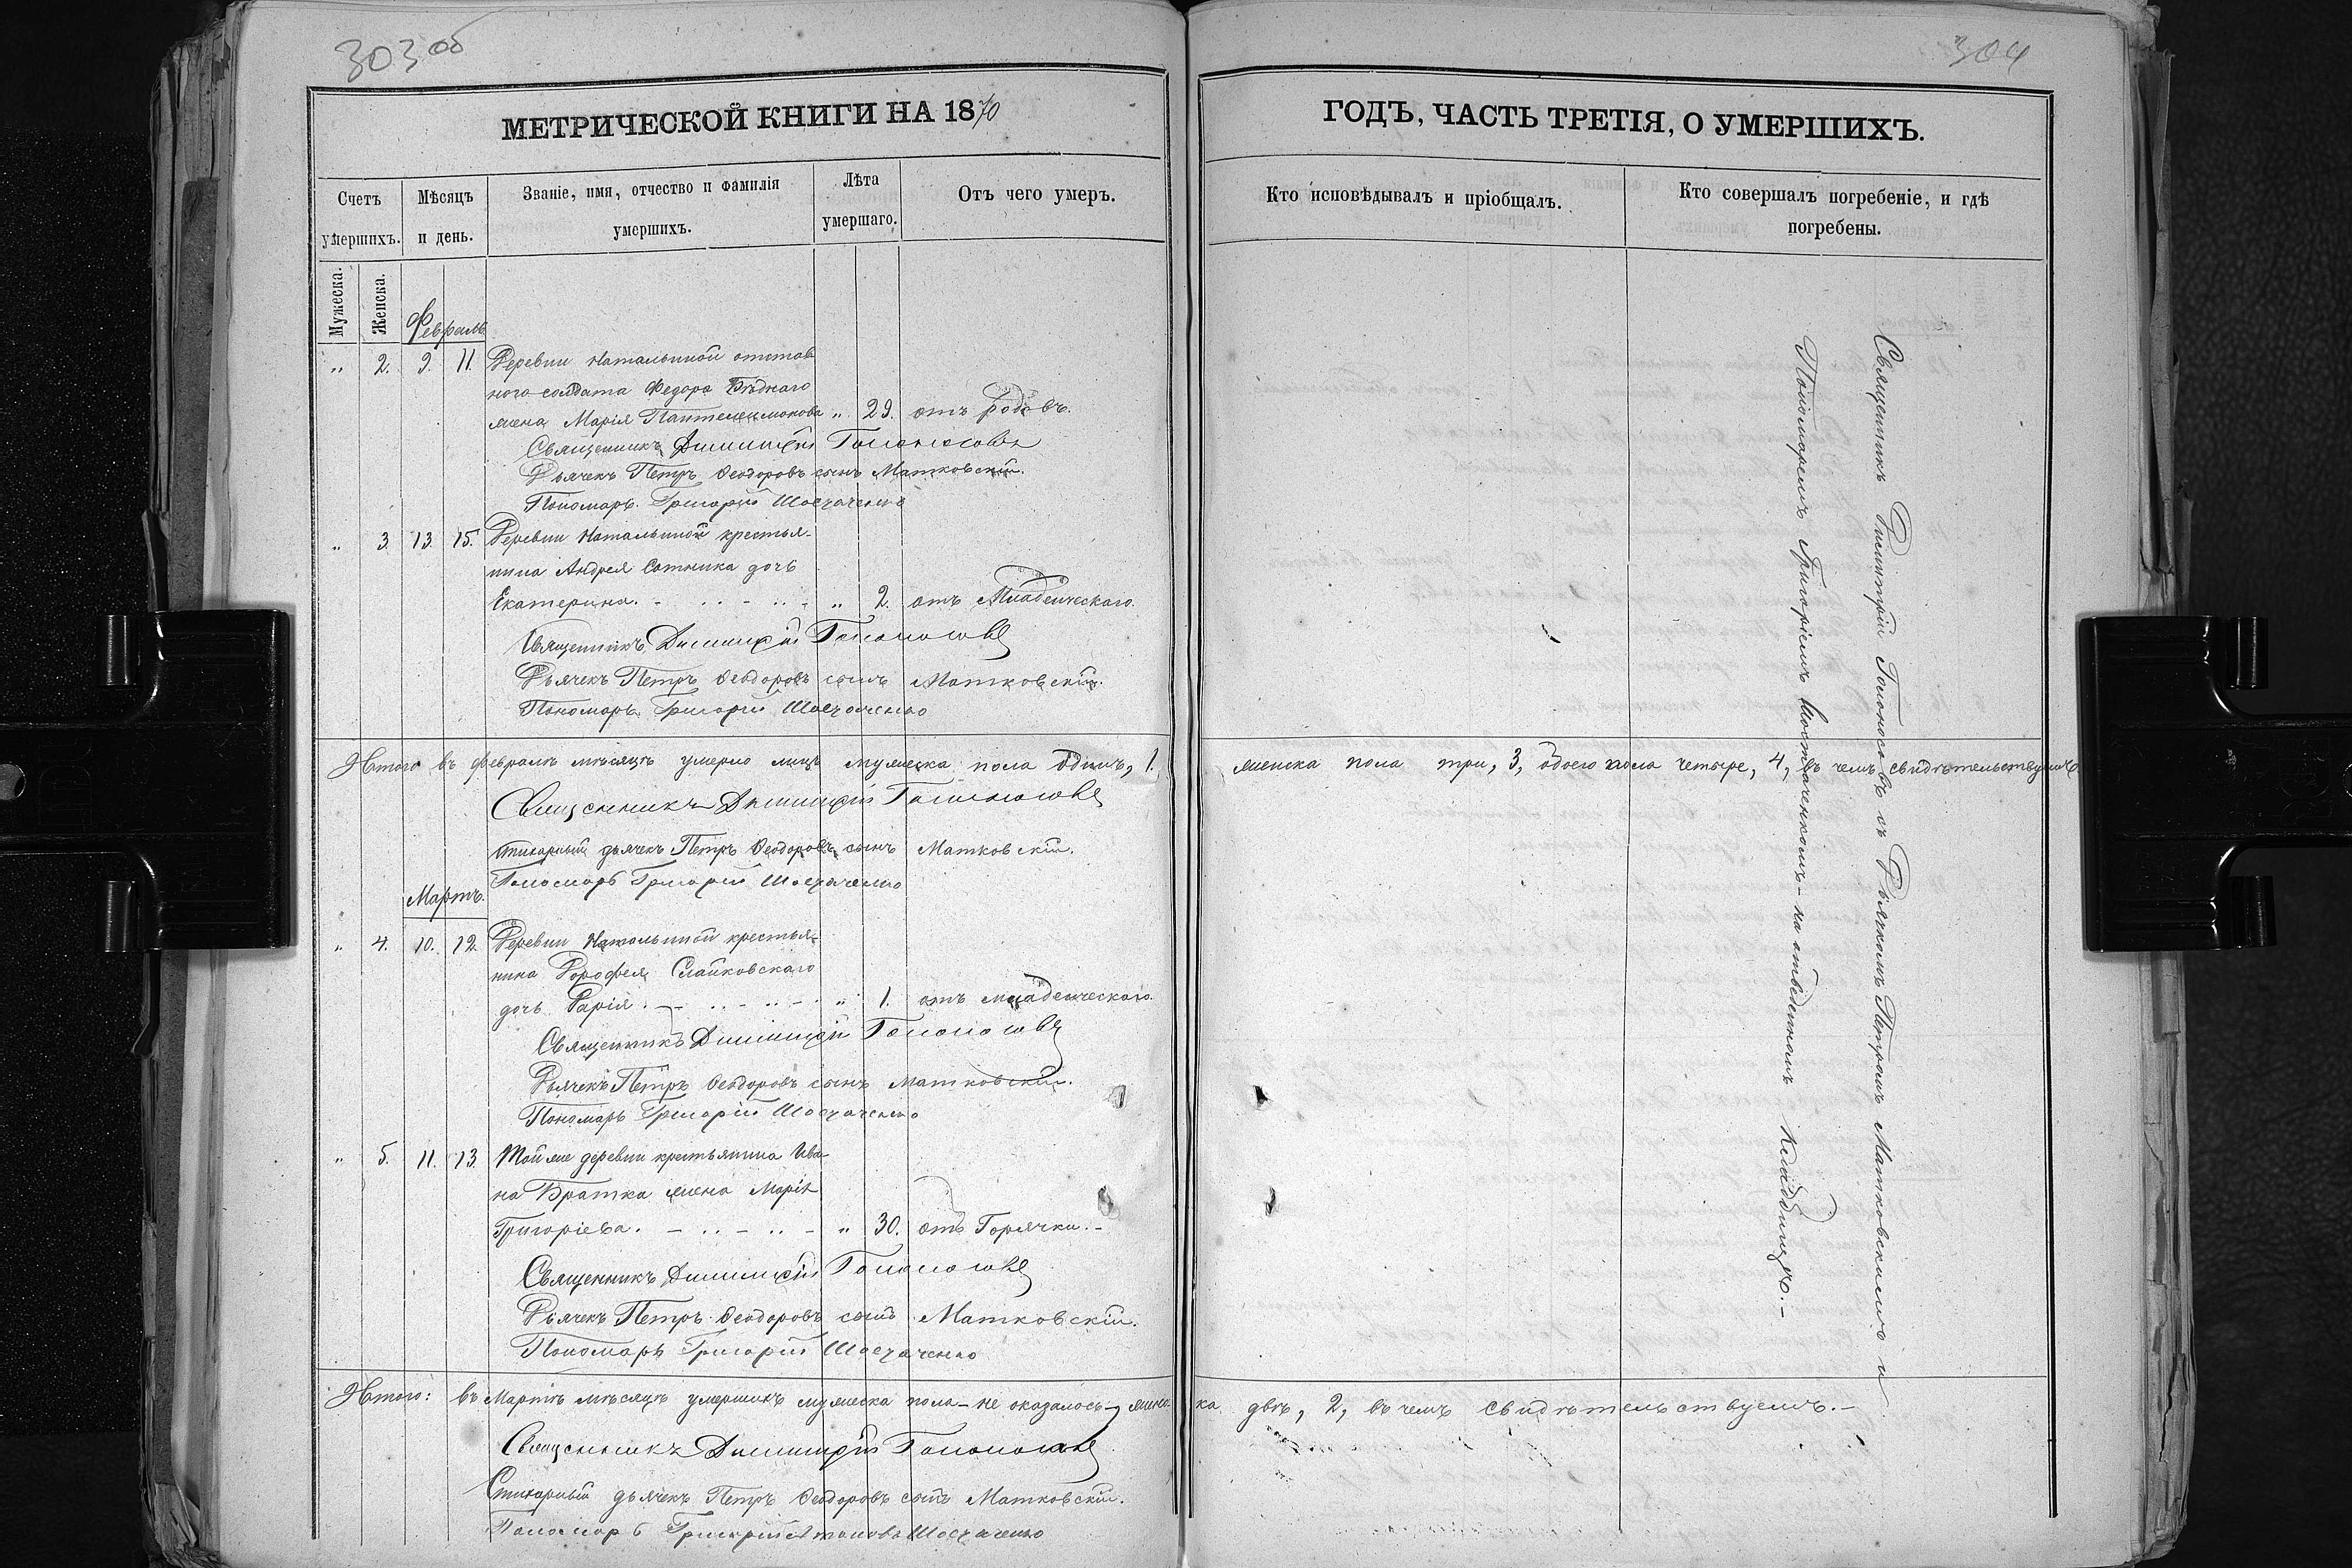 303 об
МЕТРИЧЕСКОЙ КНИГИ НА 1870
Счетъ умершихъ.
Мѣсяцъ и день.
Званіе, имя, отчество и фамилія умершихъ.
Лѣта умершаго.
Отъ чего умеръ.
Мужеска.
Женска.
Февраль
„ 2. 9. 11. Деревни Натальиной отстав
ного солдата Федора Бѣднаго
жена Марія Пантелеимонова „ 29. отъ родовъ.
Священникъ Димитрій
Дьячекъ Петръ Ѳеодоровъ сынъ Матковскій.
Пономарь Григорій
„ 3 13. 15. Деревни Натальиной крестья-
нина Андрея Сотника дочь
Екатерина. - „ 2. отъ Младенческаго.
Священникъ Димитрій
Дьячекъ Петръ Ѳеодоровъ сынъ Матковскій.
Пономарь Григорій
Итого въ февралѣ мѣсяцѣ умерло лицъ мужеска пола одинъ, 1.
Священникъ Димитрій
Стихарный дьячекъ Петръ Ѳеодоровъ сынъ Матковскій.
Пономарь Григорій
Мартъ.
„ 4. 10. 12. Деревни Натальиной крестья-
нина Дорофея Слайковскаго
дочь Дарія. - „ 1. отъ младенческаго.
Священникъ Димитрій
Дьячекъ Петръ Ѳеодоровъ сынъ Матковскій.
Пономарь Григорій
„ 5. 11. 13. Той же деревни крестьянина Ива-
на Братка жена Марія
Григоріева. - „ 30. отъ Горячки. -
Священникъ Димитрій
Дьячекъ Петръ Ѳеодоровъ сынъ Матковскій.
Пономарь Григорій
Итого: въ Мартѣ мѣсяцѣ умершихъ мужеска пола - не оказалось, женс-
Священникъ Димитрій
Стихарный дьячекъ Петръ Ѳеодоровъ сынъ Матковскій.
Пономарь Григорій
304
ГОДЪ, ЧАСТЬ ТРЕТІЯ, О УМЕРШИХЪ.
Кто исповѣдывалъ и пріобщалъ.
Кто совершалъ погребеніе, и гдѣ погребены.
женска пола три, 3, обоего пола четыре, 4, въ чемъ свидѣтельствуемъ.
Священникъ Димитрій съ Дьячкомъ Петромъ Матковскимъ и
Пономаремъ Григоріемъ - на отведенномъ кладбищѣ. -
ка двѣ, 2, въ чемъ свидѣтельствуемъ. -